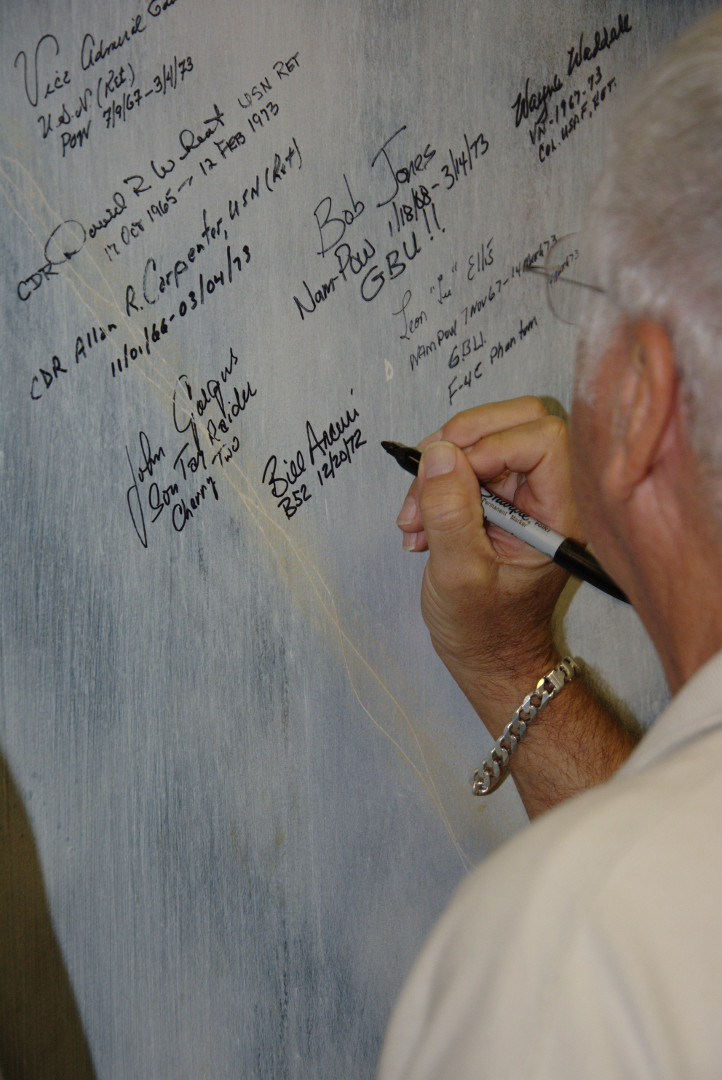 Vice Admiral
U.S.N (Ret)
POW 7/9/67-3/4/73
CDR David R Wheat USN RET
17 Oct 1965 → 12 FEB 1973
CDR Allan R. Carpenter, USN (Ret)
11/01/66-03/04/73
Bob Jones
Nam-POW 1/18/68-3/14/73
GBU!!
Wayne Waddell
VN-1967-73
Col. USAF, RET.
Leon "Lee" Ellis
NAM POW 7 Nov 67-14 Mar 73
GBU.
F-4C Phantom
John Gargus
Son Tay Raider
Cherry Two
Bill Arcuri
B52 12/20/72
Sharpie
Permanent Marker